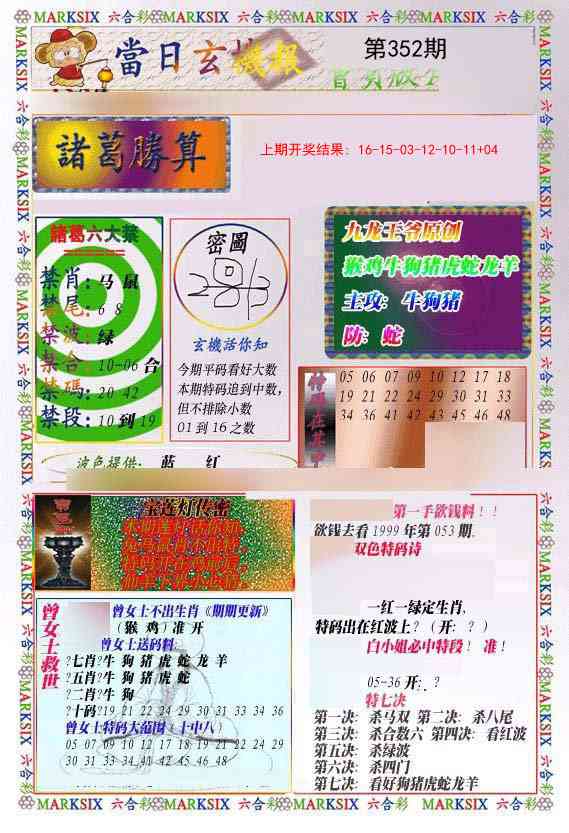 MARKSIX 六合彩 MARKSIX 六合彩 MARKSIX 六合彩 MARKSIX 六合彩
當日玄機報
第352期
諸葛勝算
上期开奖结果：16-15-03-12-10-11+04
諸葛六大禁
禁肖：马 鼠
禁尾：6 8
禁波：绿
禁合：10-06 合
禁碼：20 42
禁段：10 到 19
密圖
玄機活你知
今期平码看好大数
本期特码追到中数，
但不排除小数
01 到 16 之数
九龙王爷原创
猴鸡牛狗猪虎蛇龙羊
主攻：牛狗猪
防：蛇
特码在其中
05 06 07 09 10 12 17 18
19 21 22 24 29 30 31 33
34 36 41 42 43 45 46 48
波色提供：蓝 红
宝莲灯传密
曾女士救世
曾女士不出生肖《期期更新》
（猴 鸡）准 开
曾女士送码料
?七肖?牛 狗 猪 虎 蛇 龙 羊
?五肖?牛 狗 猪 虎 蛇
?二肖?牛 狗
?十码?19 21 22 24 29 30 31 33 34 36
曾女士特码大范围（十中八）
05 07 09 10 12 17 18 19 21 22 24 29
30 31 33 34 41 42 45 46 48
第一手欲钱料！！
欲钱去看 1999 年第 053 期.
双色特码诗
一红一绿定生肖，
特码出在红波上？（开：？）
白小姐必中特段！ 准！
05-36 开：？
特七决
第一决：杀马双 第二决：杀八尾
第三决：杀合数六 第四决：看红波
第五决：杀绿波
第六决：杀四门
第七决：看好狗猪虎蛇龙羊
MARKSIX 六合彩 MARKSIX 六合彩 MARKSIX 六合彩 MARKSIX 六合彩